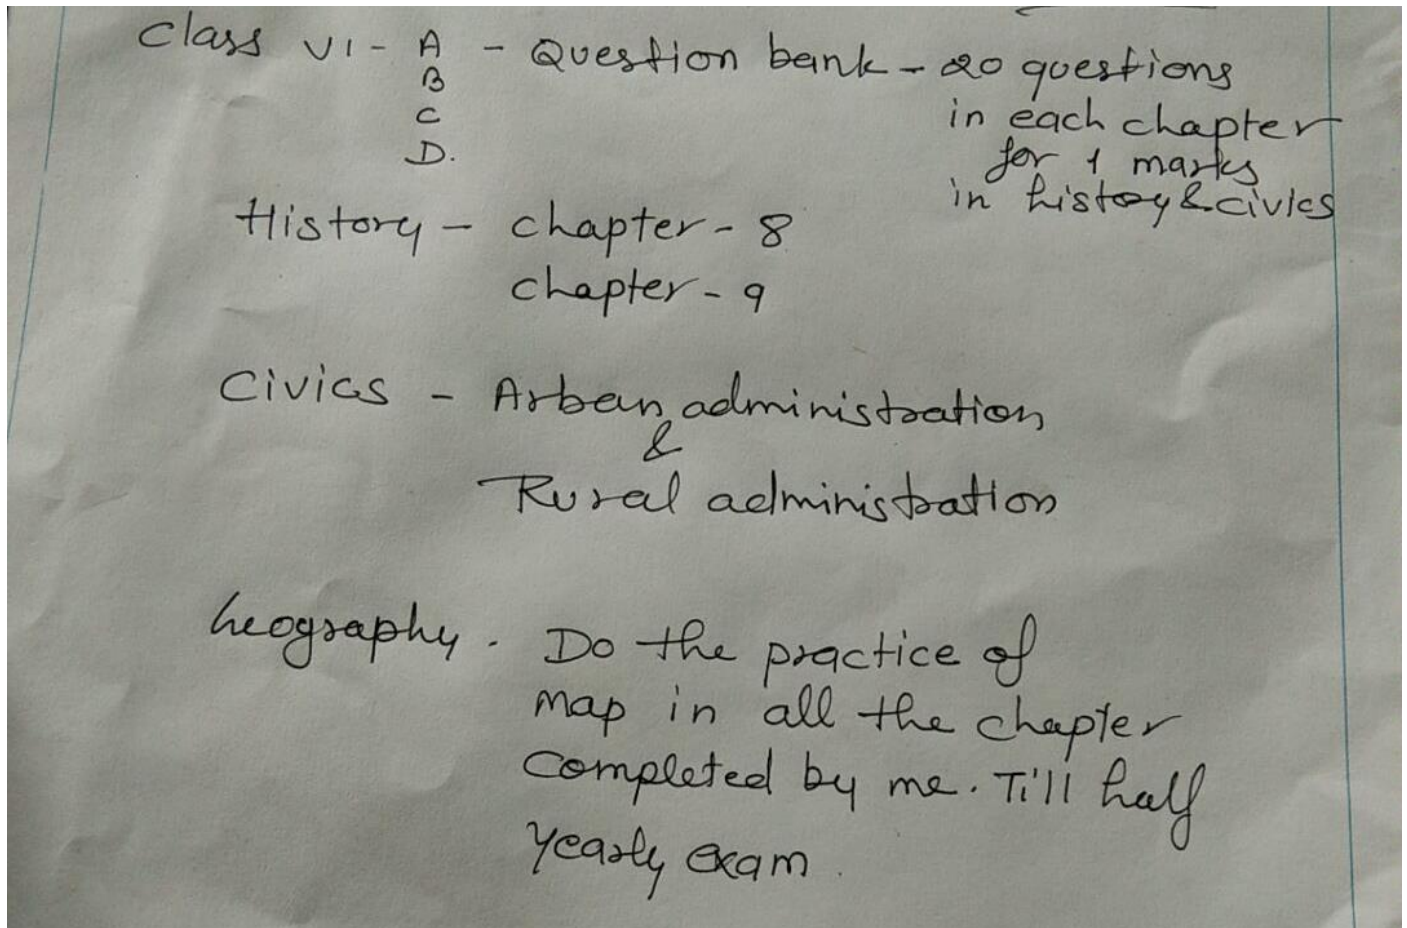 Class VI - A - Question bank - 20 questions
B
C
D.
in each chapter
for 1 marks
in history & civics
History - chapter - 8
chapter - 9
Civics - Arban administration
&
Rural administration
Geography. Do the practice of
map in all the chapter
completed by me. Till half
yearly exam.